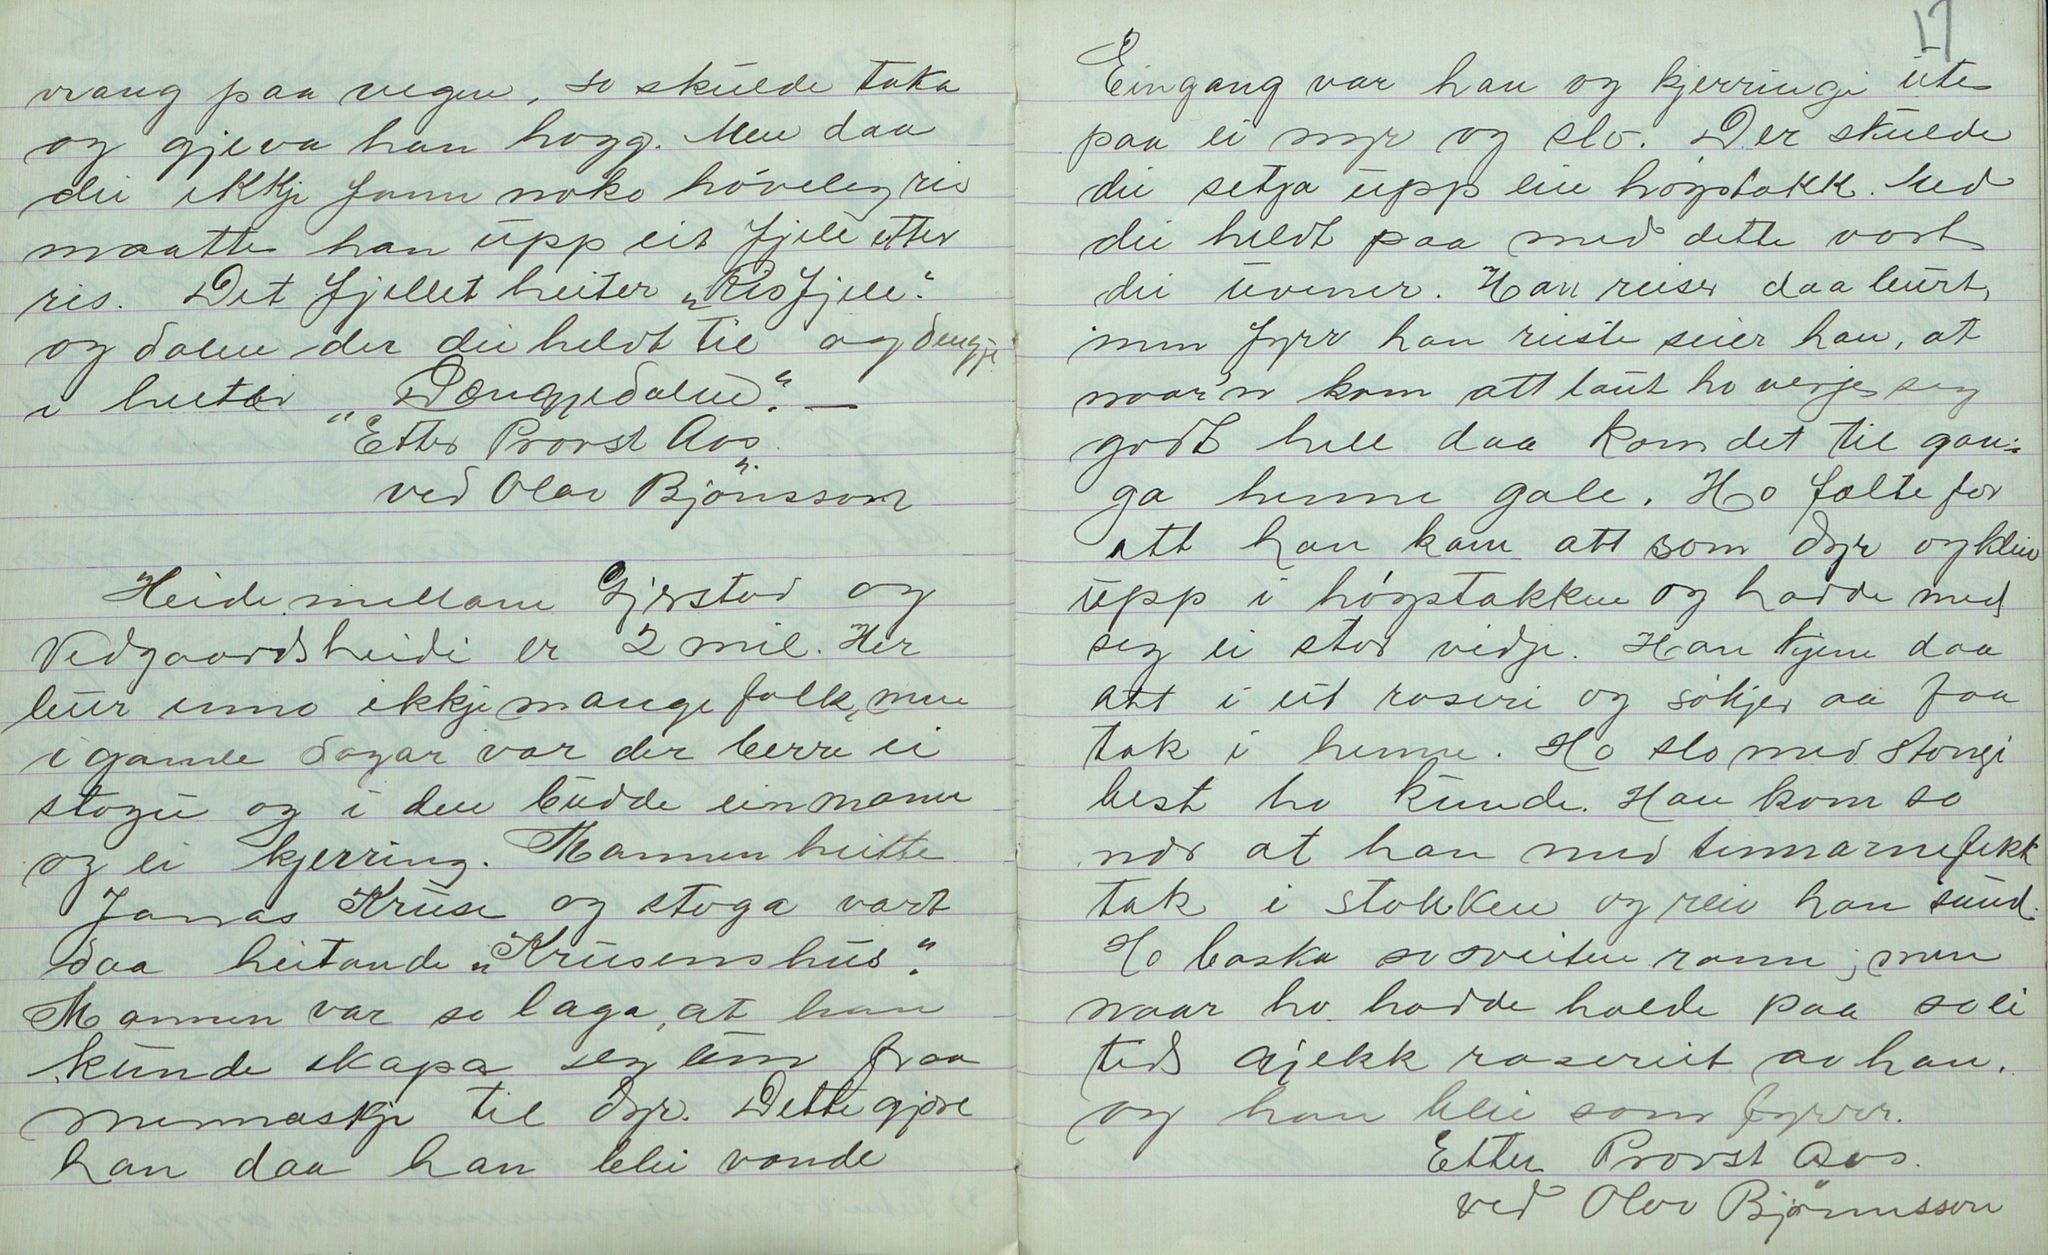 vrang paa vegen, so skulde taka
og gjeva han hogg. Men daa
dei ikkje fann noko höveleg ris
maatte han upp eit fjell etter
ris. Det fjellet heiter „Risfjell“
og dalen der dei heldt til og dengje
i heiter „Dængjedalen“. —
"Etter Provst Aas
ved Olav Bjönsson"

Heidi millom Gjerstad og
Vedgaardsheidi er 2 mil. Her
buer enno ikkje mange folk, men
i gamle dagar var der berre ei
stogu og i den budde ein mann
og ei kjerring. Mannen heitte
Jonas Kruse og stoga vart
daa heitande „Krusenshus“.
Mannen var so laga, at han
kunde skapa seg um fraa
menneskje til dyr. Dette gjore
han daa han blei vonde
17
Eingang var han og kjerringi ute
paa ei myr og slo. Der skulde
dei setja upp ein höystakk. Med
dei heldt paa med dette vart
dei uvener. Han reiser daa burt,
men fyrr han reiste seier han, at
naar'n kom att laut ho verje seg
godt hell daa kom det til gan-
ga henne gale. Ho fælte for
att han kom att som dyr og kleiv
upp i höystakken og hadde med
seg ei stor vidje. Han kjem daa
att i eit raseri og sökjer aa faa
tak i henne. Ho slo med stongi
best ho kunde. Han kom so
nær at han med tennarne fekk
tak i stokken og reiv han sund.
Ho baska so sveiten rann, men
naar ho hadde halde paa so ei
tid gjekk raseriet av han,
og han blei som fyrr.
Etter Provst Aas.
ved Olav Bjönnsson